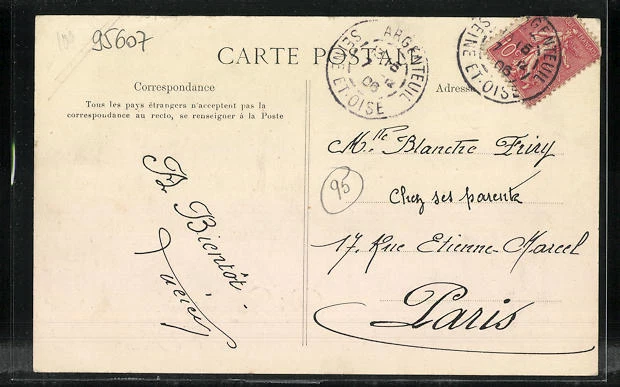 95607
CARTE POSTALE
ARGENTEUIL
SEINE-ET-OISE
06
ARGENTEUIL
SEINE-ET-OISE
06
10
Correspondance
Tous les pays étrangers n'acceptent pas la
correspondance au recto, se renseigner à la Poste
Bientôt
Adresse
M.lle Blanche
Chez ses parents
17, Rue Etienne-Marcel
Paris
95